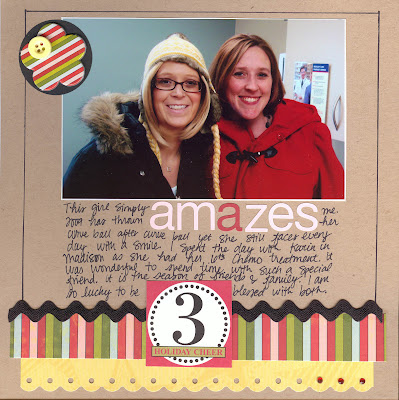 This girl simply amazes me.
2009 has thrown her
curve ball after curve ball yet she still faces every
day with a smile. I spent the day with Karin in
Madison as she had her 10th chemo treatment. It
was wonderful to spend time with such a special
friend. it is the season of friends & family. I am
so lucky to be blessed with both.
3
HOLIDAY CHEER